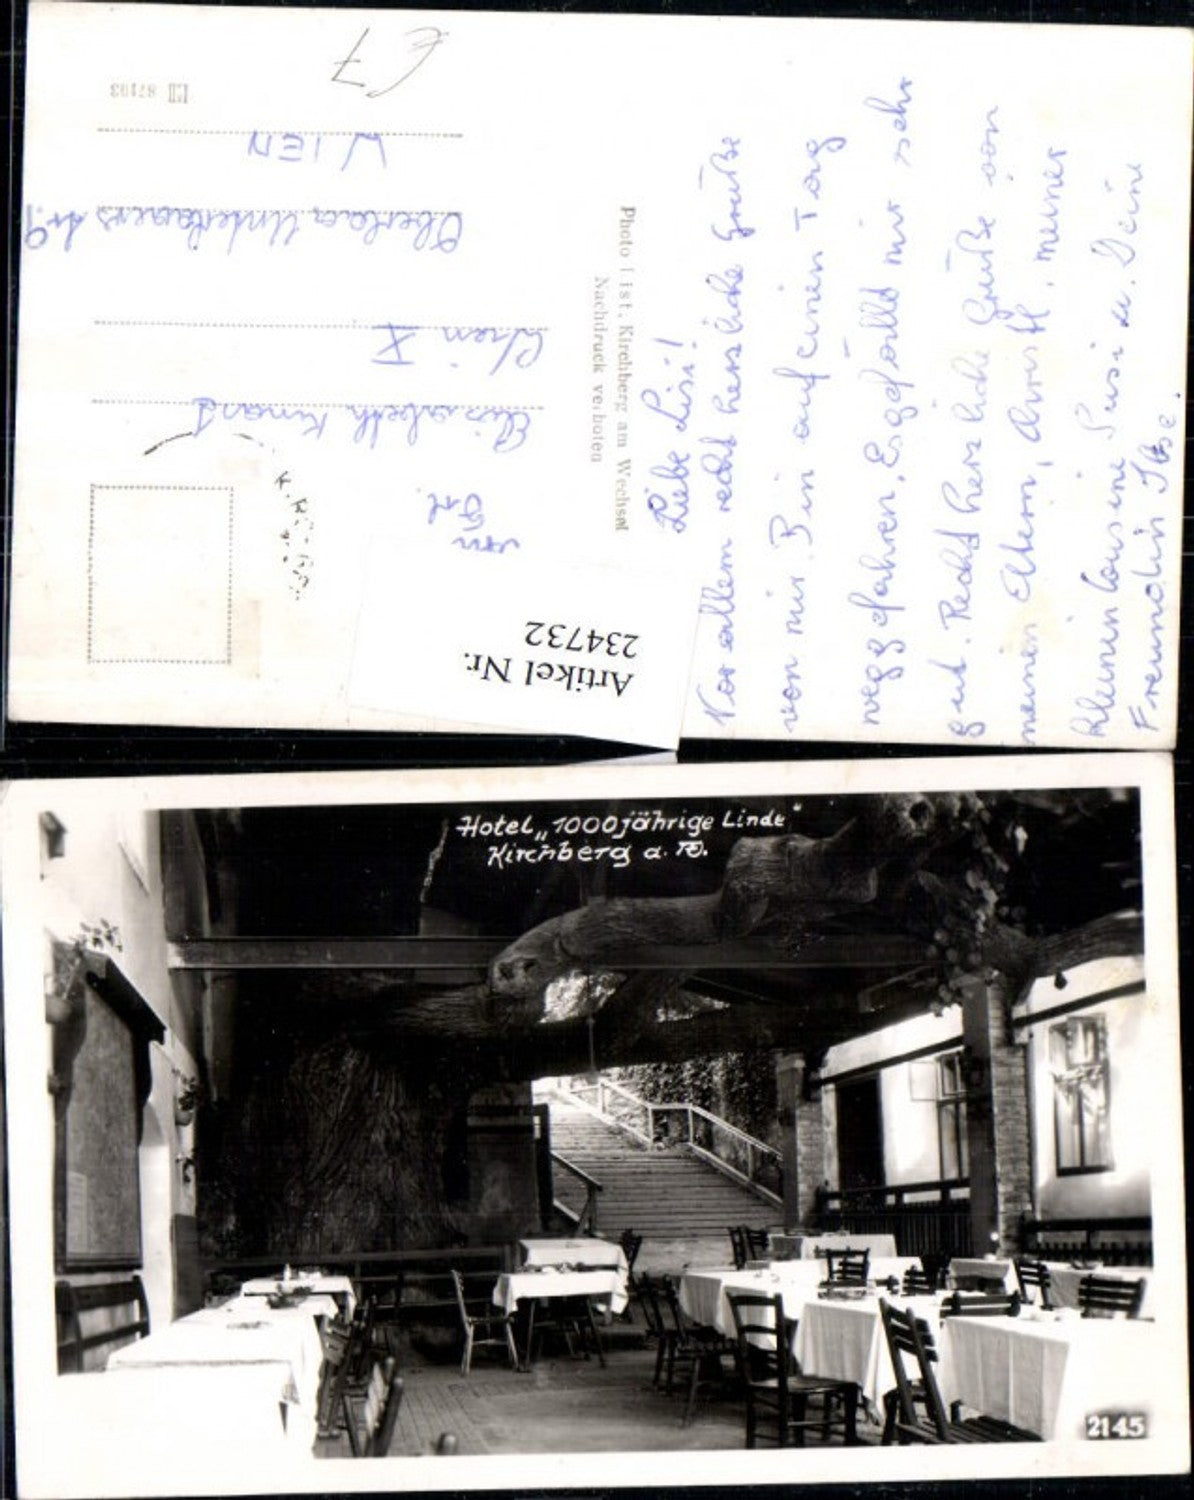 € 7
87193
WIEN
Oberlaa Unterlaaers
Wien X
Elisabeth
An
Frl.
Photo List, Kirchberg am Wechsel
Nachdruck verboten
Artikel Nr.
234732
Liebe Lisi!
Vor allem recht herzliche Grüße
von mir. Bin auf einen Tag
weggefahren. Es gefällt mir sehr
gut. Recht herzliche Grüße von
meinen Eltern, meiner
kleinen Cousine Susi u. Deine
Freundin Ilse.
Hotel „1000jährige Linde"
Kirchberg a. W.
2145